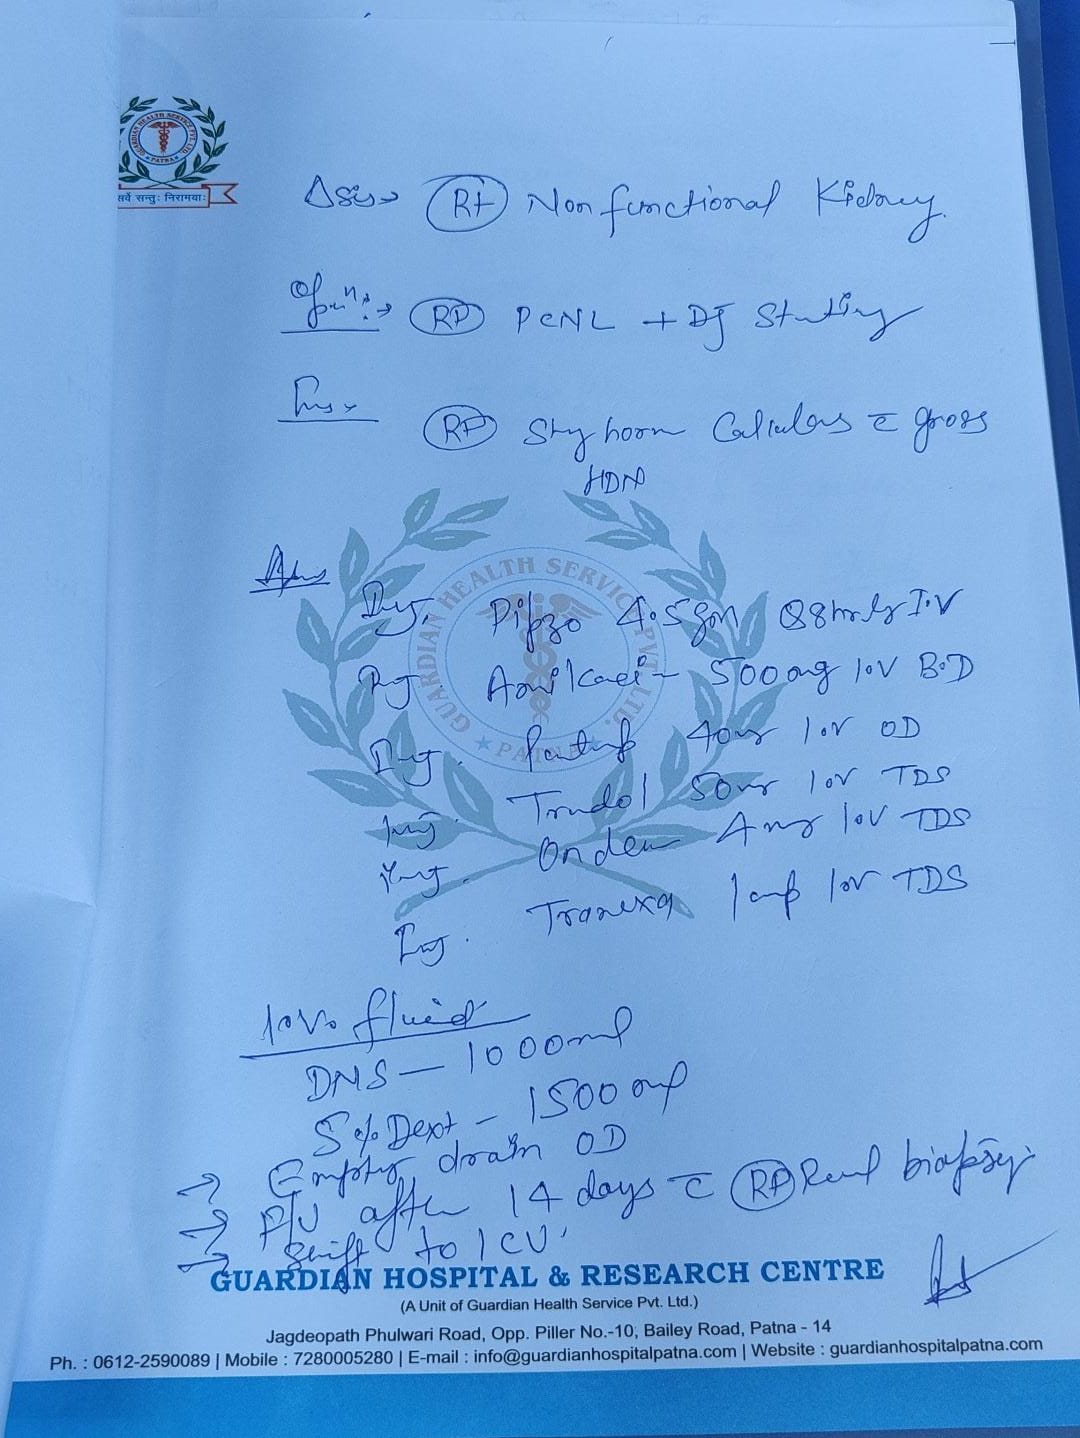 GUARDIAN HEALTH SERVICE PVT. LTD.
★ PATNA ★
सर्वे सन्तु: निरामया:
Rt Nonfunctional Kidney.
PCNL + DJ Stenting
Stag horn Calculus c̄ gross
HDN
GUARDIAN HEALTH SERVICE PVT. LTD.
★ PATNA ★
Inj. Pipzo 4.5gm Q8hrly I.V
Inj Amikacin - 500mg I.V B.D
Inj. Pantop 40mg I.V OD
Inj. Tramadol 50mg I.V TDS
Inj. Ondem 4mg I.V TDS
Inj. Tranexa 1amp I.V TDS
I.V. fluid
DNS - 1000ml
5% Dext - 1500ml
→ Empty drain OD
→ F/U after 14 days c̄ Renal biopsy.
→ Shift to ICU.
GUARDIAN HOSPITAL & RESEARCH CENTRE
(A Unit of Guardian Health Service Pvt. Ltd.)
Jagdeopath Phulwari Road, Opp. Piller No.-10, Bailey Road, Patna - 14
Ph. : 0612-2590089 | Mobile : 7280005280 | E-mail : info@guardianhospitalpatna.com | Website : guardianhospitalpatna.com